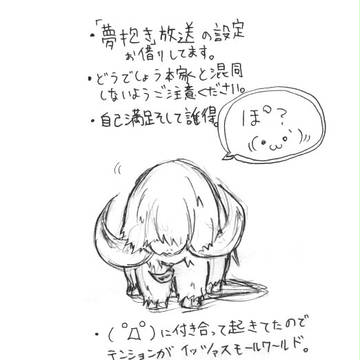 ・「夢抱き放送」の設定
お借りしてます。
・どうでしょう本家と混同
しないようご注意ください。
・自己満足そして誰得。
ぽ？
(´･ω･`)
・( ﾟДﾟ)に付き合って起きてたので
テンションがイッツァスモールワールド。